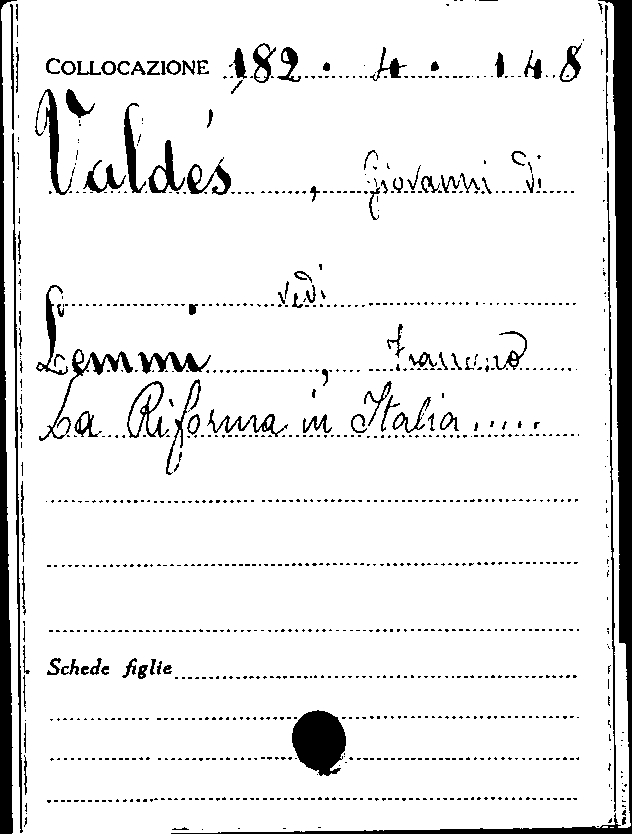 COLLOCAZIONE 182 . 4 . 148
Valdés, Giovanni di
vedi
Lemmi, Francesco
La Riforma in Italia.....
Schede figlie